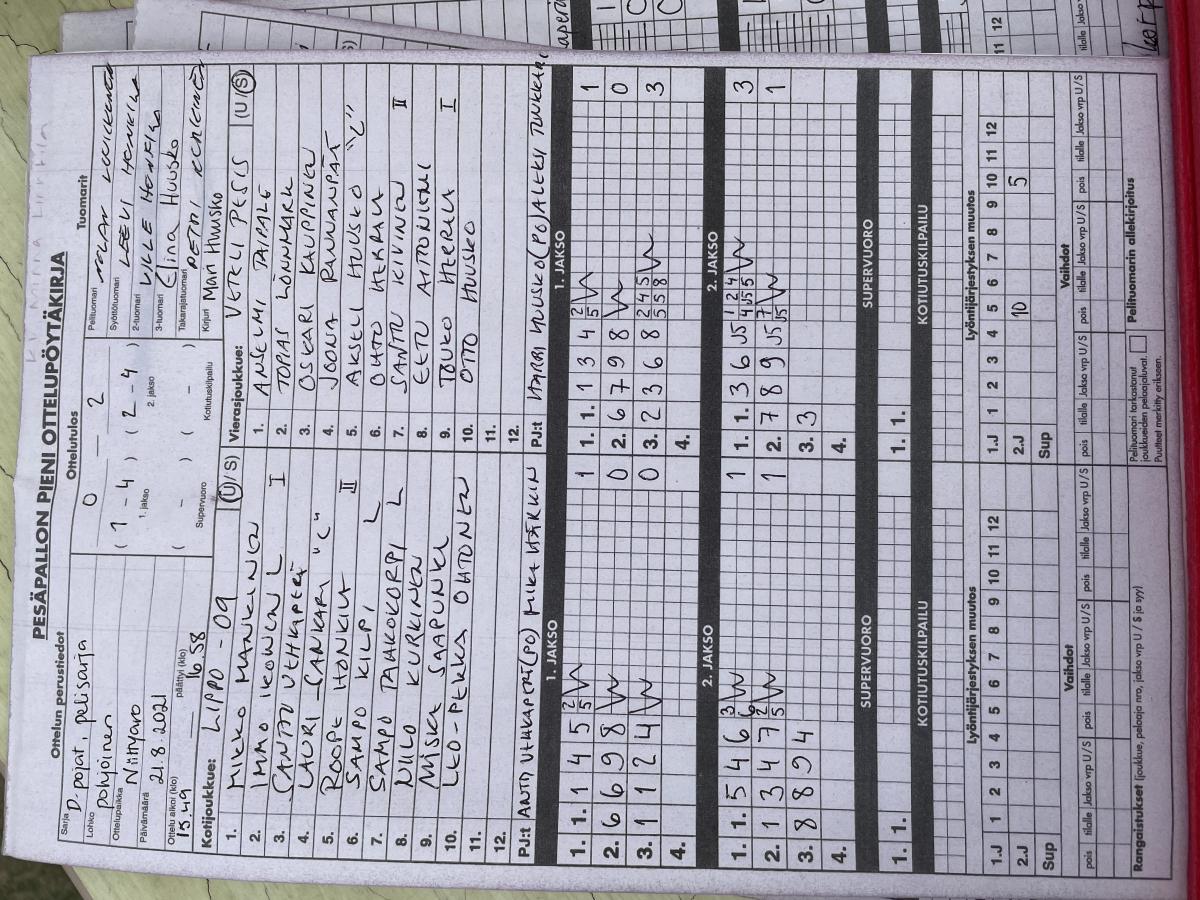 PESÄPALLON PIENI OTTELUPÖYTÄKIRJA
Ottelun perustiedot
Sarja D-pojat, pelisarja
Lohko pohjoinen
Ottelupaikka Niittyaro
Päivämäärä 21.8.2021
Ottelu alkoi (klo) päättyi (klo)
15.49 16.58
Ottelutulos
0 — 2
( 1 - 4 ) ( 2 - 4 )
1. jakso 2. jakso
( - ) ( - )
Supervuoro Kotiutuskilpailu
Tuomarit
Pelituomari
Syöttötuomari
2-tuomari
3-tuomari Elina Huusko
Takarajatuomari
Kirjuri Mari Huusko
Kotijoukkue: LIPPO - 09 (U/S)
1. MIKKO MANNINEN
2. IMMO IKONEN L I
3. SANTTU VEHKAPERÄ
4. LAURI SANKARI "C"
5. ROOPE HONKILA II
6. SAMPO KILPI L
7. SAMPO PAAKOKORPI L
8. NIILO KURKINEN
9. MISKA SAAPUNKI
10. LEO-PEKKA OHTONEN
11.
12.
PJ:t ANTTI VEHKAPERÄ(PO) MIKA HÄRKIN
Vierasjoukkue: VETELI PESIS (U/S)
1. ANSELMI TAIPALE
2. TOPIAS LÖNNMARK
3. OSKARI KAUPPINEN
4. JOONA RANNANPÄÄ
5. AKSELI HUUSKO "C"
6. OHTO HERRALA
7. SANTTU KIVINEN II
8. EETU AITONIEMI
9. TOUKO HERRALA I
10. OTTO HUUSKO
11.
12.
PJ:t HARRI HUUSKO(PO) ALEKSI TUNKKARI
1. JAKSO
1. 1. 1 4 5 2 5 1
2. 6 6 9 8 0
3. 1 1 2 4 0
4.
2. JAKSO
1. 1. 5 4 6 3 6 1
2. 1 3 4 7 2 5 1
3. 8 8 9 4
4.
SUPERVUORO
1. 1.
KOTIUTUSKILPAILU
1. JAKSO
1. 1. 1 3 4 2 5 1
2. 6 7 9 8 0
3. 2 3 6 8 2 4 5 5 5 8 3
4.
2. JAKSO
1. 1. 3 6 J5 1 2 4 4 J5 5 3
2. 7 8 9 J5 7 J5 1
3. 3
4.
SUPERVUORO
1. 1.
KOTIUTUSKILPAILU
Lyöntijärjestyksen muutos
1.J 1 2 3 4 5 6 7 8 9 10 11 12
2.J
Sup
Vaihdot
pois tilalle Jakso vrp U/S pois tilalle Jakso vrp U/S pois tilalle Jakso vrp U/S
Lyöntijärjestyksen muutos
1.J 1 2 3 4 5 6 7 8 9 10 11 12
2.J 10 5
Sup
Vaihdot
pois tilalle Jakso vrp U/S pois tilalle Jakso vrp U/S pois tilalle Jakso vrp U/S
Rangaistukset (joukkue, pelaaja nro, jakso vrp U / S ja syy)
Pelituomari tarkastanut
joukkueiden pelaajaluvat.
Puutteet merkitty erikseen.
Pelituomarin allekirjoitus
11 12
tilalle Jakso vrp U/S